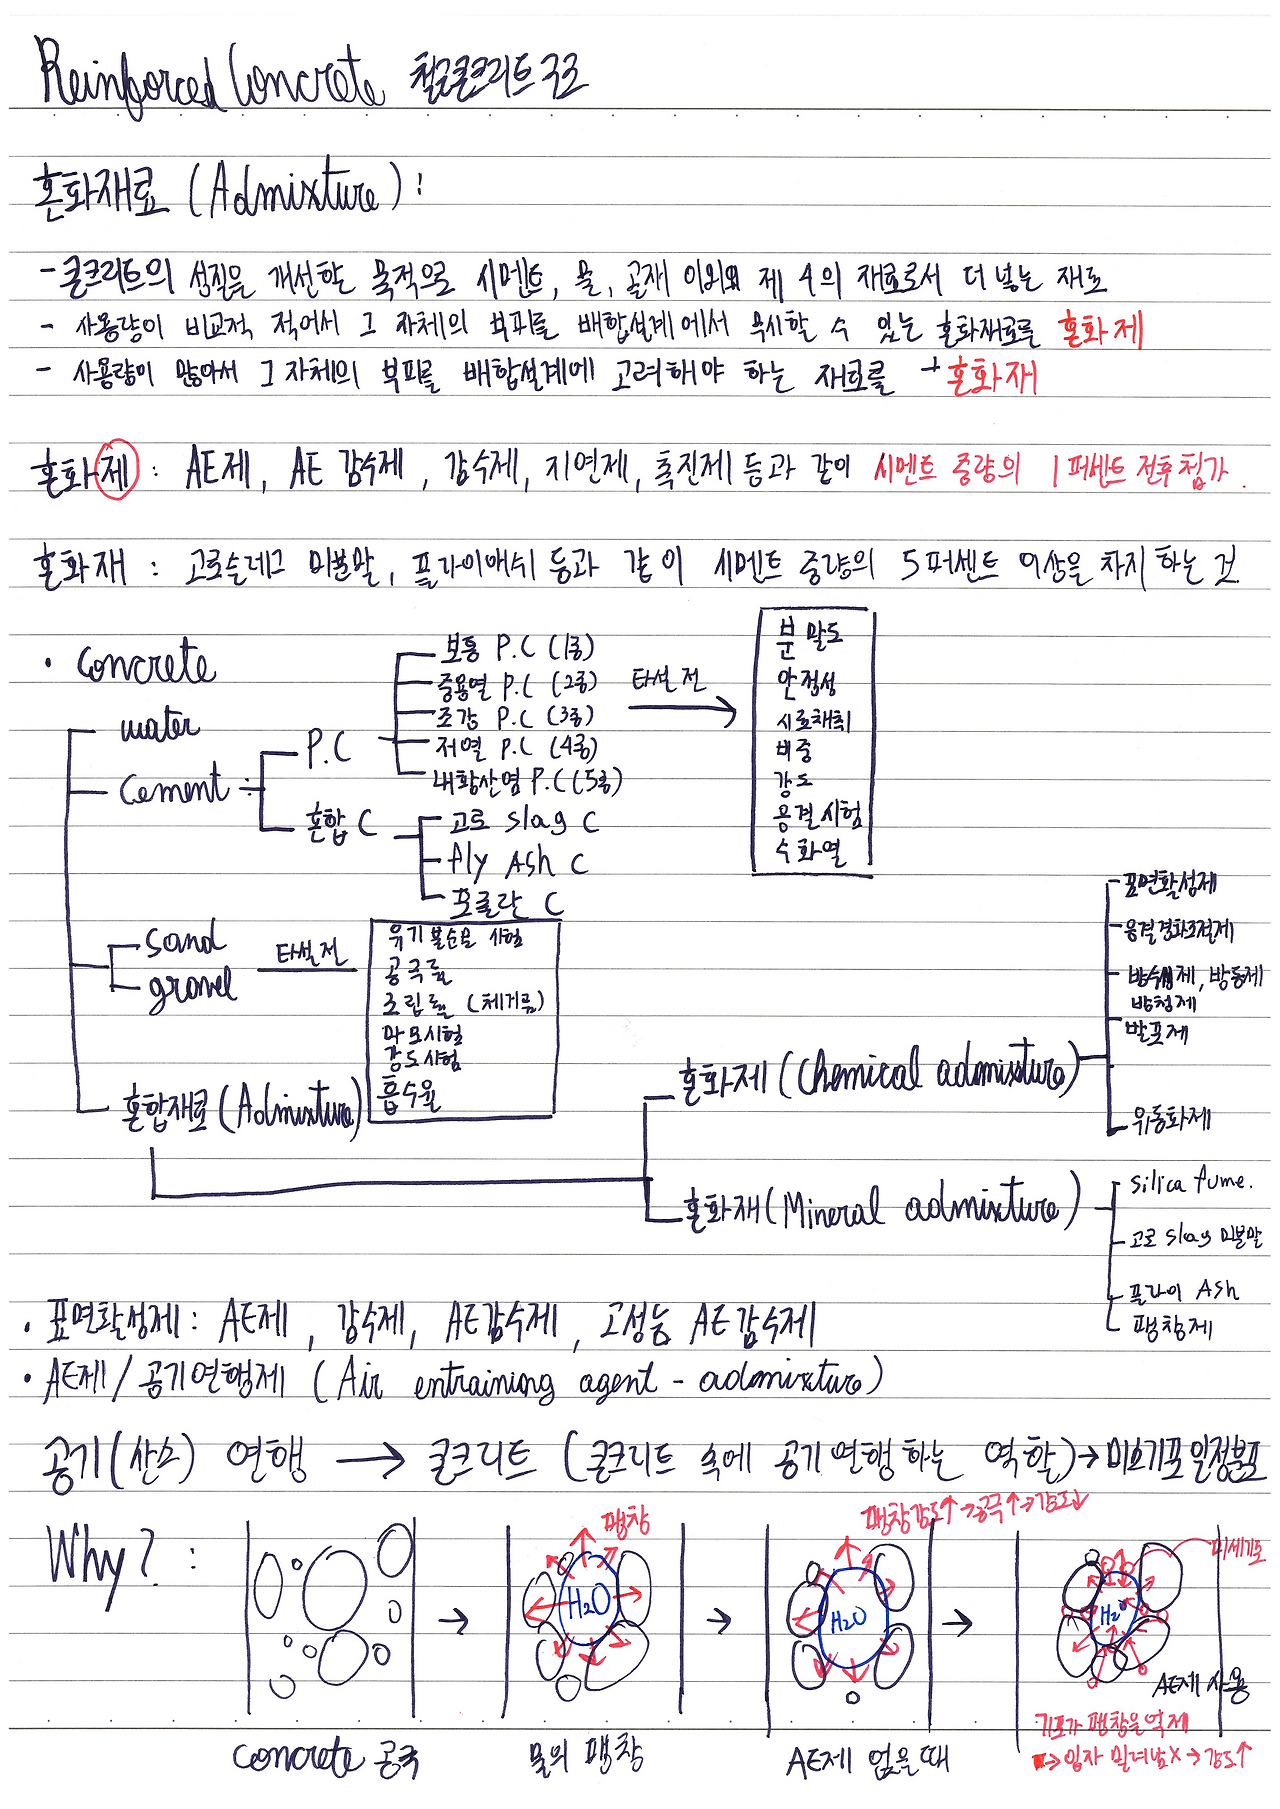 Reinforced Concrete 철근콘크리트 구조
혼화재료 (Admixture) :
- 콘크리트의 성질을 개선할 목적으로 시멘트, 물, 골재 이외의 제 4의 재료로서 더 넣는 재료
- 사용량이 비교적 적어서 그 자체의 부피를 배합설계에서 무시할 수 있는 혼화재료를 혼화제
- 사용량이 많아서 그 자체의 부피를 배합설계에 고려해야 하는 재료를 → 혼화재
혼화제 : AE제, AE 감수제, 감수제, 지연제, 촉진제 등과 같이 시멘트 중량의 1퍼센트 전후 첨가.
혼화재 : 고로슬래그 미분말, 플라이애쉬 등과 같이 시멘트 중량의 5퍼센트 이상을 차지하는 것.
· Concrete
water
Cement
P.C
보통 P.C (1종)
중용열 P.C (2종)
조강 P.C (3종)
저열 P.C (4종)
내황산염 P.C (5종)
타설 전
분말도
안정성
시료채취
비중
강도
응결시험
수화열
혼합 C
고로 slag C
fly Ash C
포졸란 C
sand
gravel
타설전
유기불순물 시험
공극률
조립률 (체거름)
마모시험
강도시험
흡수율
혼합재료 (Admixture)
혼화제 (Chemical admixture)
표면활성제
응결경화조절제
방수제, 방동제
방청제
발포제
유동화제
혼화재 (Mineral admixture)
Silica fume.
고로 slag 미분말
플라이 Ash
팽창제
· 표면활성제 : AE제, 감수제, AE감수제, 고성능 AE감수제
· AE제 / 공기연행제 (Air entraining agent - admixture)
공기(산소) 연행 → 콘크리트 (콘크리트 속에 공기 연행하는 역할) → 미소기포 일정분포
Why? :
팽창
H₂O
팽창강도↑ → 공극↑ → 강도↓
H₂O
미세기포
H₂O
AE제 사용
기포가 팽창을 억제
→ 입자 밀려남X → 강도↑
Concrete 공극
물의 팽창
AE제 없을 때